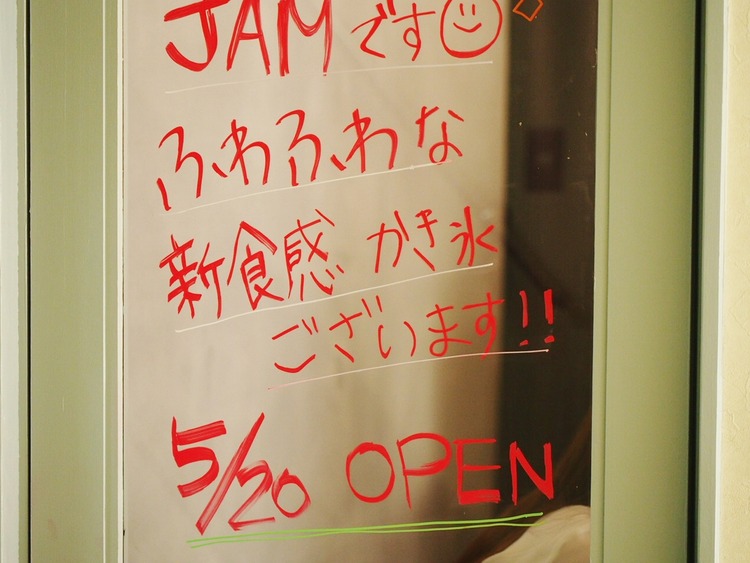 JAM です
ふわふわな
新食感 かき氷
ございます!!
5/20 OPEN